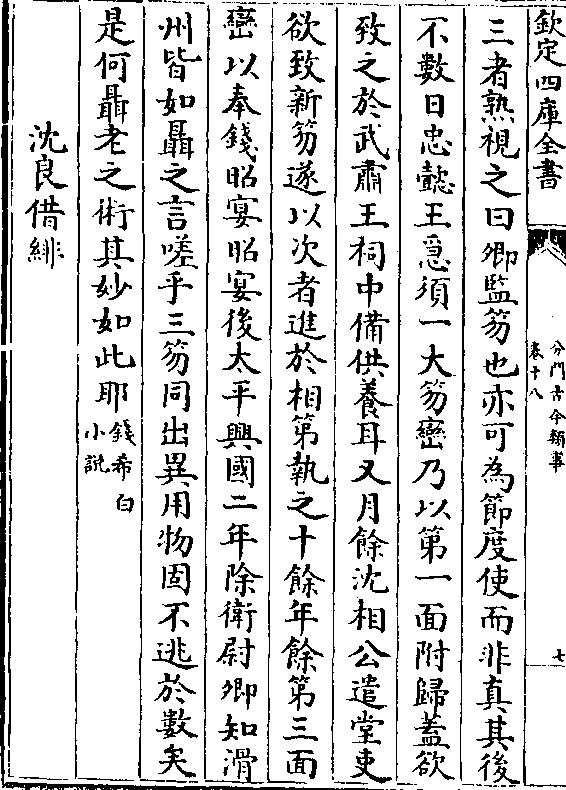 欽定四庫全書
分門古今類事
卷十八
七
三者熟視之曰卿監笏也亦可為節度使而非真其後
不數日忠懿王急須一大笏巒乃以第一面附歸蓋欲
致之於武肅王祠中備供養耳又月餘沈相公遣堂吏
欲致新笏遂以次者進於相第執之十餘年餘第三面
巒以奉錢昭宴昭宴後太平興國二年除衛尉卿知滑
州皆如聶之言嗟乎三笏同出異用物固不逃於數矣
是何聶老之術其妙如此耶錢希白
小說
沈良借緋